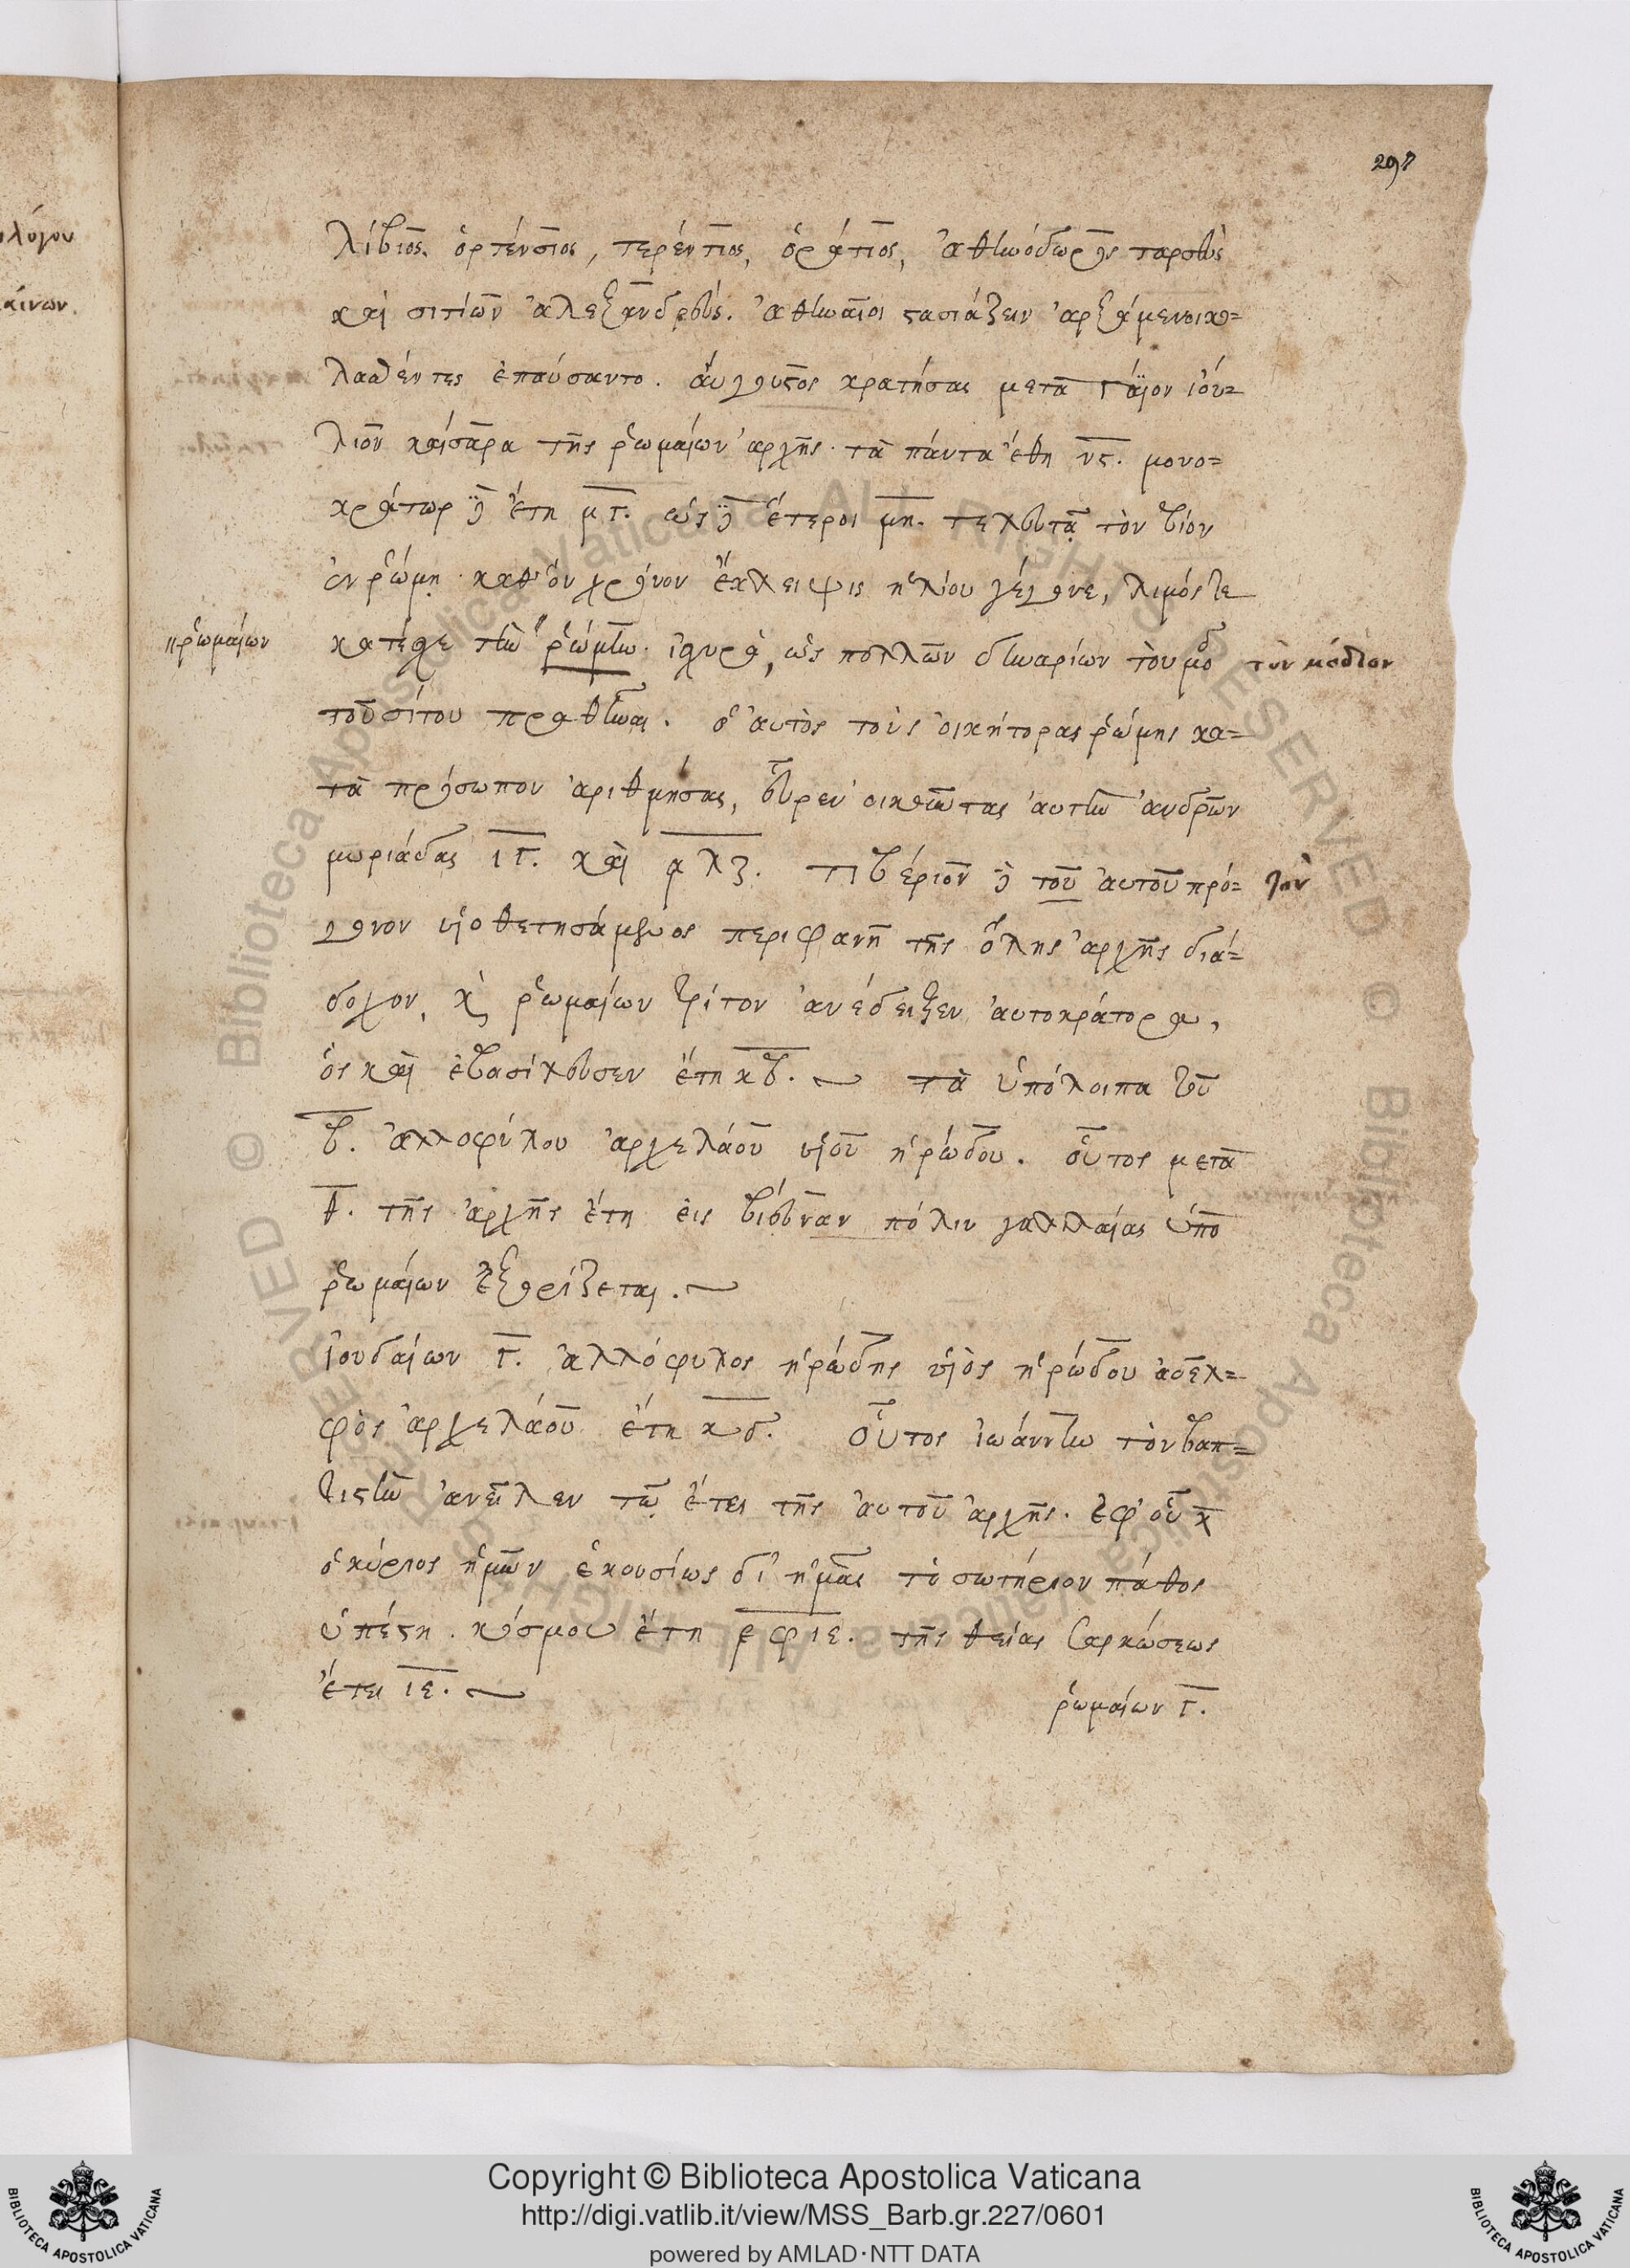 297
λόγου
αίνων.
λίβιος. ὁρτένσιος, τερέντιος, ὁράτιος, ἀθηνόδωρος ταρσεὺς
καὶ σιτίων ἀλεξανδρεύς. ἀθηναῖοι στασιάζειν ἀρξάμενοι κο=
λασθέντες ἐπαύσαντο. ἄυγουστος κρατήσας μετὰ γάϊον ἰού=
λιον καίσαρα τῆς ῥωμαίων ἀρχῆς τὰ πάντα ἔθη νς. μονο=
κράτωρ δὲ ἔτη μγ. ὡς δὲ ἕτεροι μη. τελευτᾷ τὸν βίον
ἐν ῥώμῃ. καθ' ὃν χρόνον ἔκλειψις ἡλίου γέγονε, λιμός τε
ἡ ῥωμαίων
κατέσχε τὴν ῥώμην ἰσχυρὸ, ὡς πολλῶν δηναρίων τὸν μὸ
τὸν μόδιον
τοῦ σίτου πραθῆναι. ὁ αὐτὸς τοὺς οἰκήτορας ῥώμης κα=
τὰ πρόσωπον ἀριθμήσας, εὗρεν οἰκοῦντας αὐτὴν ἀνδρῶν
μυριάδας ιγ. καὶ αλζ. τιβέριον δὲ τοῦ αὐτοῦ πρό=
τὸν
γονον υἱοθετησάμενος περιφανῆ τῆς ὅλης ἀρχῆς διά=
δοχον, κὶ ῥωμαίων τρίτον ἀνέδειξεν αὐτοκράτορα,
ὃς καὶ ἐβασίλευσεν ἔτη κβ. τὰ ὑπόλοιπα τοῦ
β. ἀλλοφύλου ἀρχελάου υἱοῦ ἡρώδου. οὗτος μετὰ
θ. τῆς ἀρχῆς ἔτη εἰς βίενναν πόλιν γαλλαίας ὑπὸ
ῥωμαίων ἐξορίζεται.
Ἰουδαίων γ. ἀλλόφυλος ἡρώδης υἱὸς ἡρώδου ἀδελ=
φὸς ἀρχελάου ἔτη κδ. οὗτος ἰωάννην τὸν βαπ=
τιστὴν ἀνεῖλεν τῷ ἔτει τῆς αὐτοῦ ἀρχῆς. ἐφ' οὗ κ
ὁ κύριος ἡμῶν ἑκουσίως δι' ἡμᾶς τὸ σωτήριον πάθος
ὑπέστη. κόσμου ἔτη εφιε. τῆς θείας σαρκώσεως
ἔτει ιε.
ῥωμαίων γ.
Copyright © Biblioteca Apostolica Vaticana
http://digi.vatlib.it/view/MSS_Barb.gr.227/0601
powered by AMLAD·NTT DATA
BIBLIOTECA APOSTOLICA VATICANA
BIBLIOTECA APOSTOLICA VATICANA